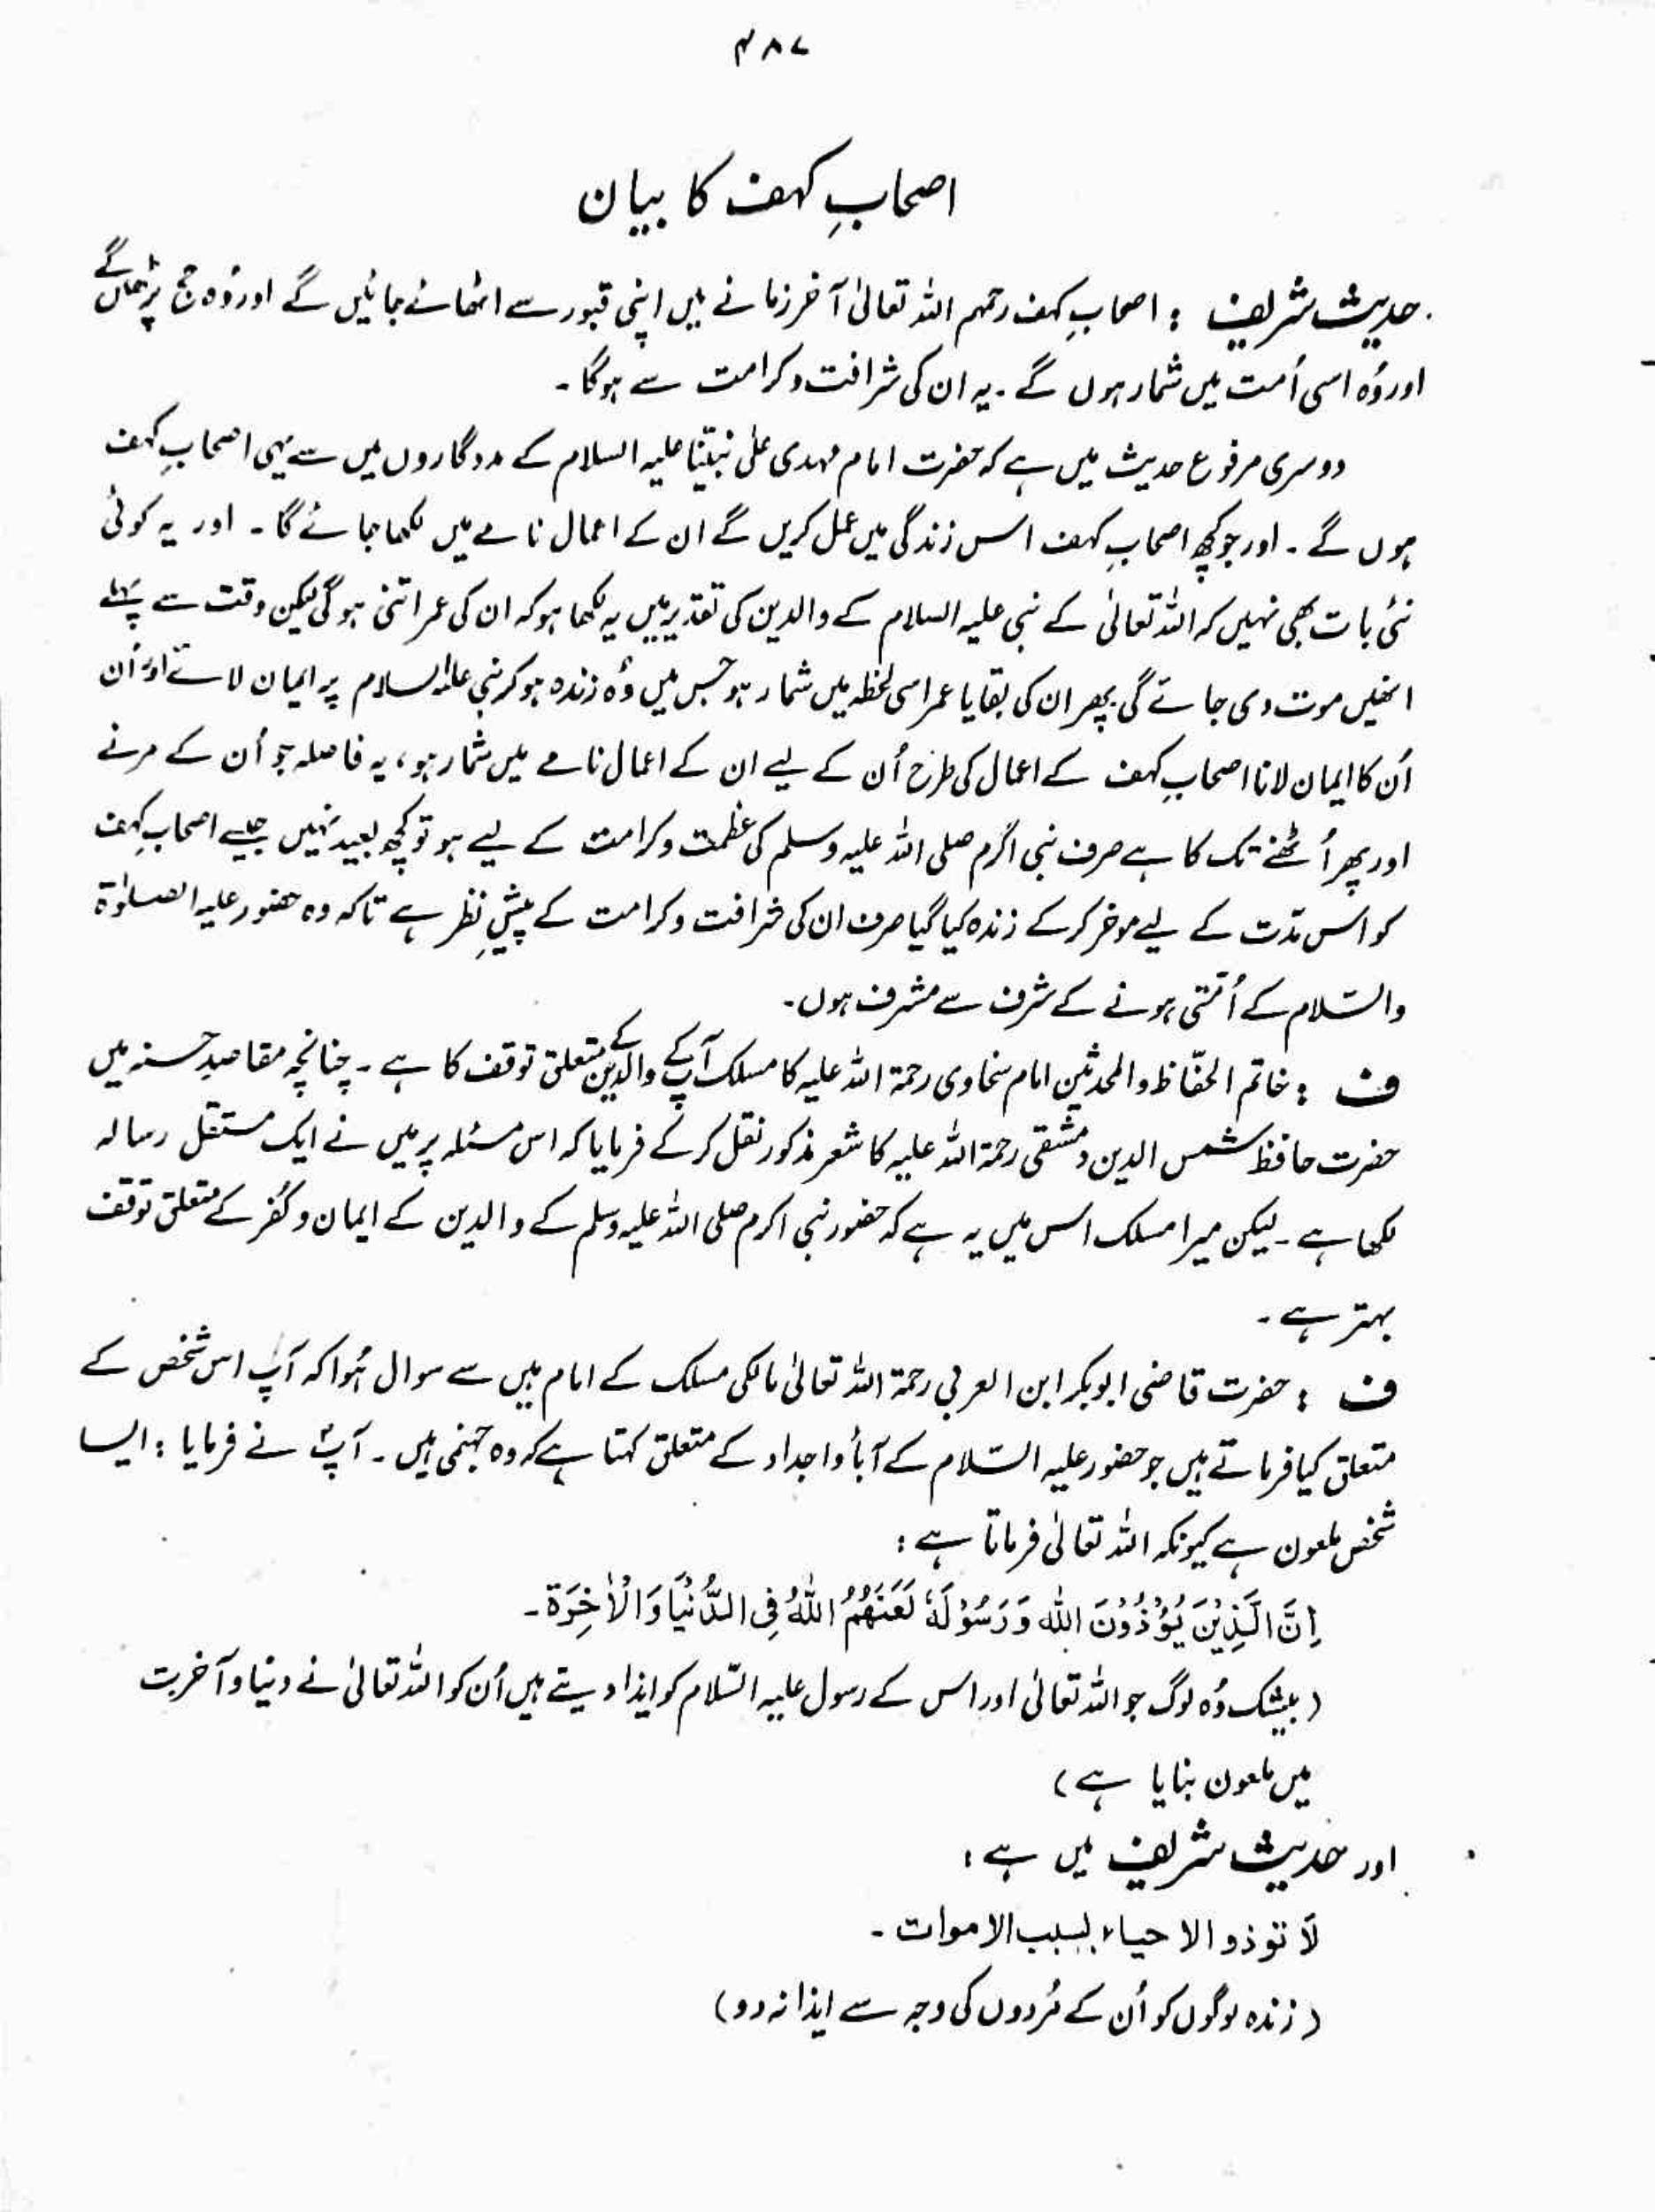 ۴۸۷
اصحابِ کہف کا بیان
حدیث شریف : اصحابِ کہف رحمہم اللہ تعالیٰ آخر زمانے میں اپنی قبور سے اٹھائے جائیں گے اور وُہ حج پڑھیں گے
اور وُہ اسی اُمت میں شمار ہوں گے ۔ یہ ان کی شرافت و کرامت سے ہوگا ۔
دوسری مرفوع حدیث میں ہے کہ حضرت امام مہدی علیٰ نبیّنا علیہ السلام کے مددگاروں میں سے یہی اصحابِ کہف
ہوں گے ۔ اور جو کچھ اصحابِ کہف اس زندگی میں عمل کریں گے ان کے اعمال نامے میں لکھا جائے گا ۔ اور یہ کوئی
نئی بات بھی نہیں کہ اللہ تعالیٰ کے نبی علیہ السلام کے والدین کی تقدیر میں یہ لکھا ہو کہ ان کی عمر اتنی ہو گی لیکن وقت سے پہلے
انھیں موت دی جائے گی پھر ان کی بقایا عمر اسی لحظہ میں شمار ہو جس میں وُہ زندہ ہو کر نبی علیہ السلام پر ایمان لائے اور اُن
اُن کا ایمان لانا اصحابِ کہف کے اعمال کی طرح اُن کے لیے ان کے اعمال نامے میں شمار ہو ، یہ فاصلہ جو اُن کے مرنے
اور پھر اُٹھنے تک کا ہے صرف نبی اکرم صلی اللہ علیہ وسلم کی عظمت و کرامت کے لیے ہو تو کچھ بعید نہیں جیسے اصحابِ کہف
کو اس مدّت کے لیے موخر کر کے زندہ کیا گیا صرف ان کی شرافت و کرامت کے پیشِ نظر ہے تاکہ وہ حضور علیہ الصلوٰۃ
والسّلام کے اُمّتی ہونے کے شرف سے مشرف ہوں ۔
ف : خاتم الحفّاظ والمحدثین امام سخاوی رحمۃ اللہ علیہ کا مسلک آپ کے والدین کے متعلق توقف کا ہے ۔ چنانچہ مقاصدِ حسنہ میں
حضرت حافظ شمس الدین دمشقی رحمۃ اللہ علیہ کا شعر مذکور نقل کر کے فرمایا کہ اس مسئلہ پر میں نے ایک مستقل رسالہ
لکھا ہے ۔ لیکن میرا مسلک اس میں یہ ہے کہ حضور نبی اکرم صلی اللہ علیہ وسلم کے والدین کے ایمان و کُفر کے متعلق توقف
بہتر ہے ۔
ف : حضرت قاضی ابوبکر ابن العربی رحمۃ اللہ تعالیٰ مالکی مسلک کے امام ہیں سے سوال ہُوا کہ آپ اس شخص کے
متعلق کیا فرماتے ہیں جو حضور علیہ السّلام کے آبأ و اجداد کے متعلق کہتا ہے کہ وہ جہنمی ہیں ۔ آپ نے فرمایا : ایسا
شخص ملعون ہے کیونکہ اللہ تعالیٰ فرماتا ہے :
اِنَّ الَّذِیْنَ یُؤْذُوْنَ اللہ وَ رَسُوْلَہٗ لَعَنَھُمُ اللہُ فِی الدُّنْیَا وَ الْاٰخِرَۃ ۔
( بیشک وُہ لوگ جو اللہ تعالیٰ اور اس کے رسول علیہ السّلام کو ایذا دیتے ہیں اُن کو اللہ تعالیٰ نے دنیا و آخرت
میں ملعون بنایا ہے )
اور حدیث شریف میں ہے :
لَا توذوا الاحیاء بسبب الاموات ۔
( زندہ لوگوں کو اُن کے مُردوں کی وجہ سے ایذا نہ دو )